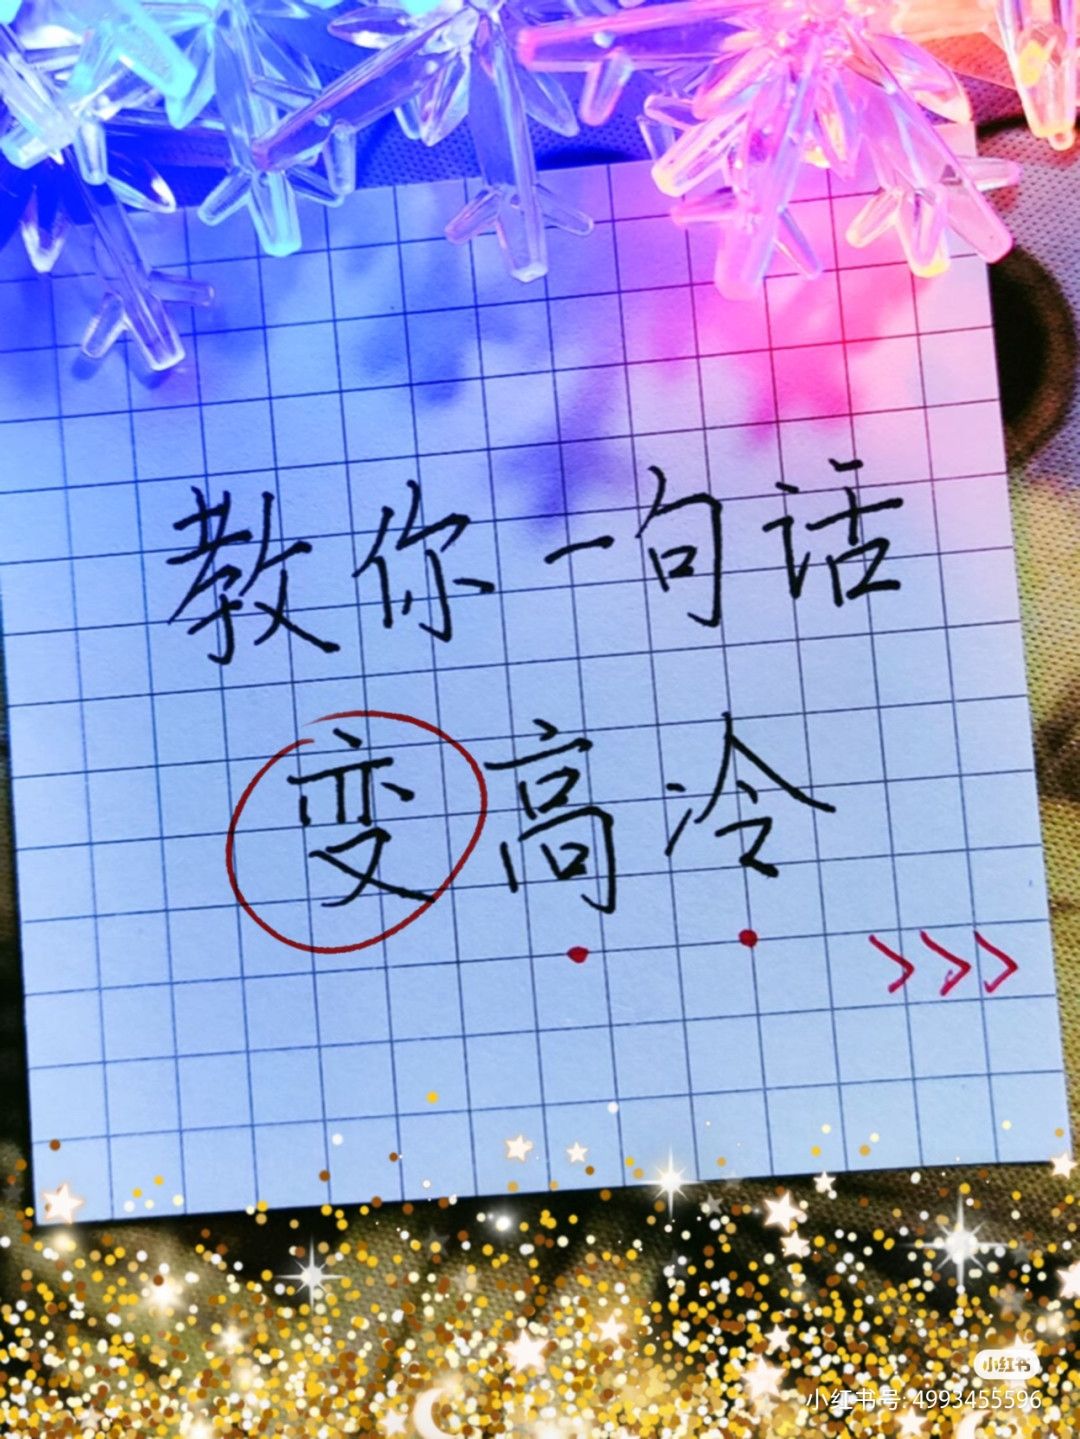 教你一句话
变高冷
>>>
小红书
小红书号: 4993455596